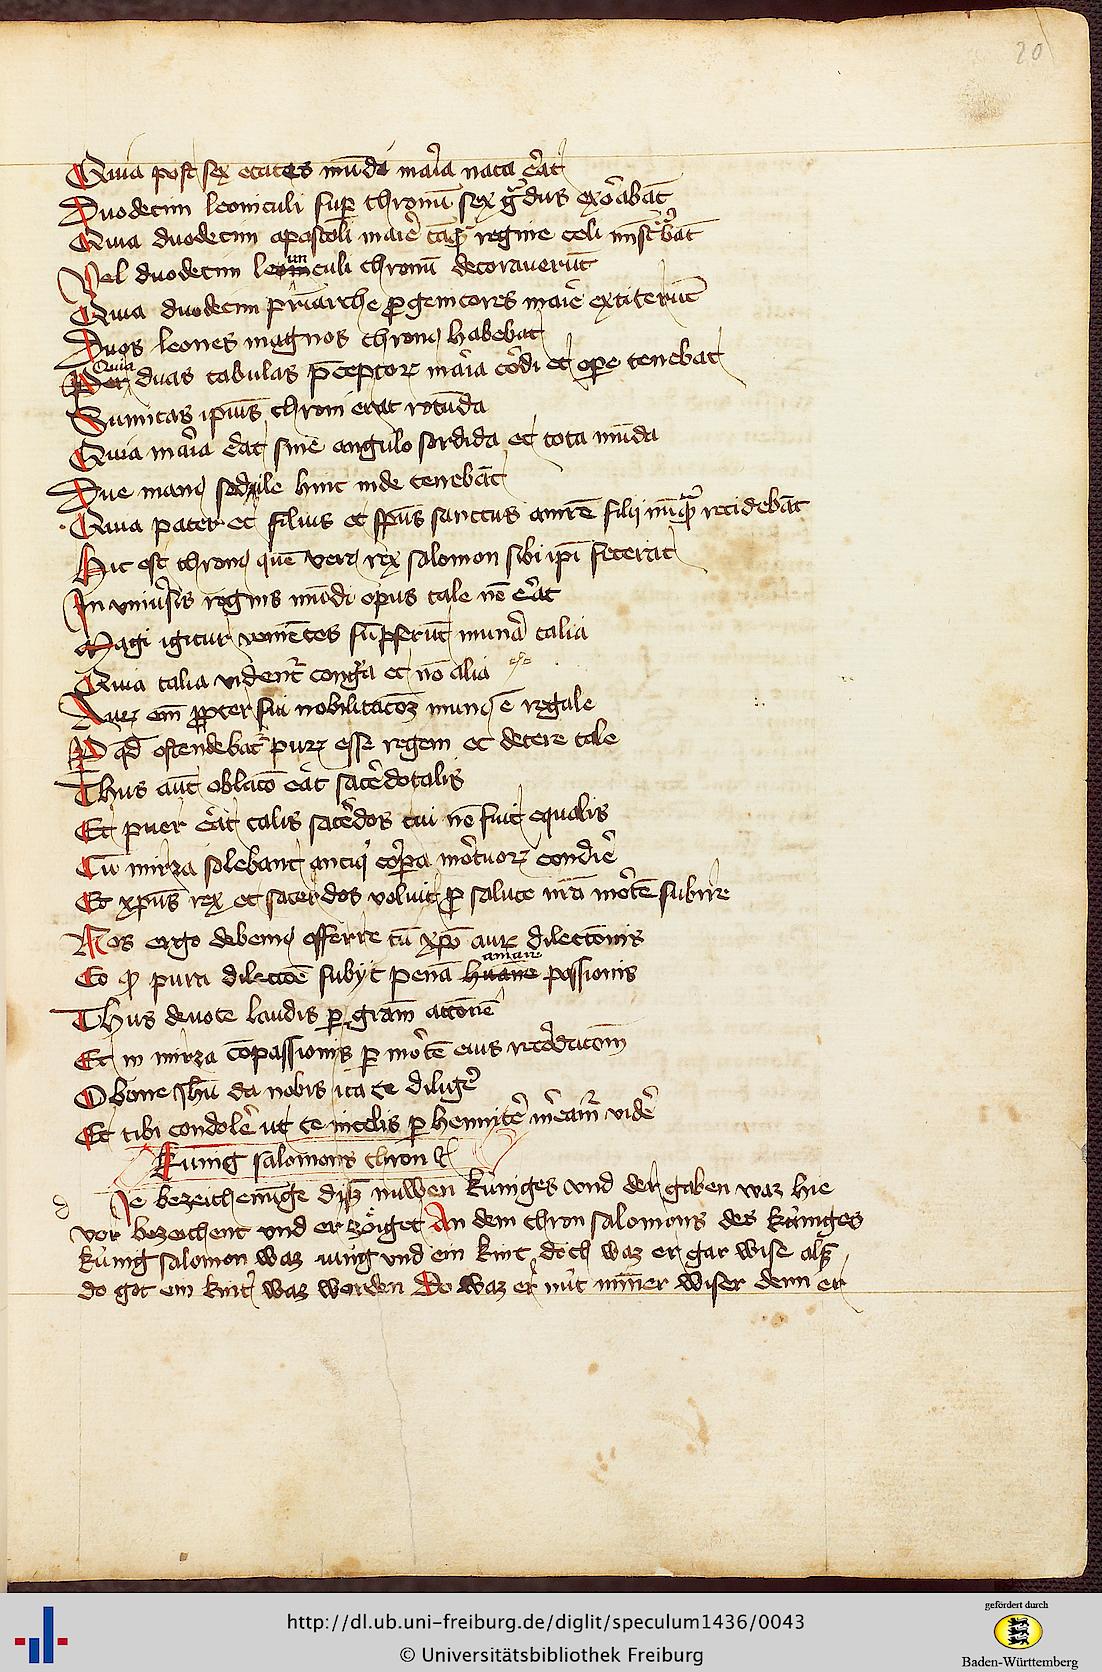 20
Quia post sex etates mūdi mar̄ia nata er̄at
Duodecim leonculi sup̄ chronū sex gͣdus exor̄abāt
Quia duodecim apostoli marie tāqͣ regine celi mīstͬbāt
Vel duodecim leunculi chronū decorauerūt
Quia duodecim pr̄iarche ꝓgenitores marie extiterūt
Duos leones magnos chronꝯ habebat
Quia duas tabulas p̄ceptoꝝ mar̄ia cor̄di et oꝑe tenebat
Sumitas ipīus chroni erat rotūda
Quia mar̄ia er̄at sine angulo sordida et tota mūda
Due manꝯ sedile hinc inde tenebāt
Quia pater et filius et sp̄us sanctus amrē filij nūqͣ recidebāt
Hic est chronꝯ quē verꝯ rex salomon sibi ip̄i fecerat
In vniuer̄sis regnis mūdi opus tale nō er̄at
Magi igitur veniētes sūpserūt muner̄a talia
Quia talia vident̄ congͬa et nō alia
Auꝝ em̄ ꝓpter sui nobilitatōꝫ munꝯ ē regale
Ꝑ qd̄ ostendebat̄ pueꝝ esse regem et decere tale
Thus aūt oblatō er̄at sacer̄dotalis
Et puer er̄at talis sacer̄dos cui nō fuit equalis
Cū mirra solebant antiqͥ cor̄pa mor̄tuoꝝ condir̄e
Et xp̄us rex et sacerdos voluit ꝓ salute nr̄a mor̄tē subire
Nos ergo debemꝯ offerre cū xp̄o auꝝ dilectōnis
Eo ꝙ pura dilectōe subyt penā amare passionis
Thus deuote laudis ꝑ gr̄am actōnē
Et in mirra cōpassionis ꝑ mor̄tē eius recor̄datōm
O bone Jh̄u da nobis ita te diliger̄e
Et tibi condoler̄e ut te in celis ꝑhenniter̄ mer̄eam̄ vider̄e
Kūnig salomons chron ꝛc
d
Je bezeichenūge diß nuwen kuͤniges vnd der gaben waz hie
vor bezeichent vnd erzoͤiget An dem chron salomons des kuͤniges
kuͤnig salomon waz iung vnd ein kint doch waz er gar wise alß
do got ein kint waz worden Do waz er nuͤt mīner wiser denn er
http://dl.ub.uni-freiburg.de/diglit/speculum1436/0043
© Universitätsbibliothek Freiburg
gefördert durch
Baden-Württemberg